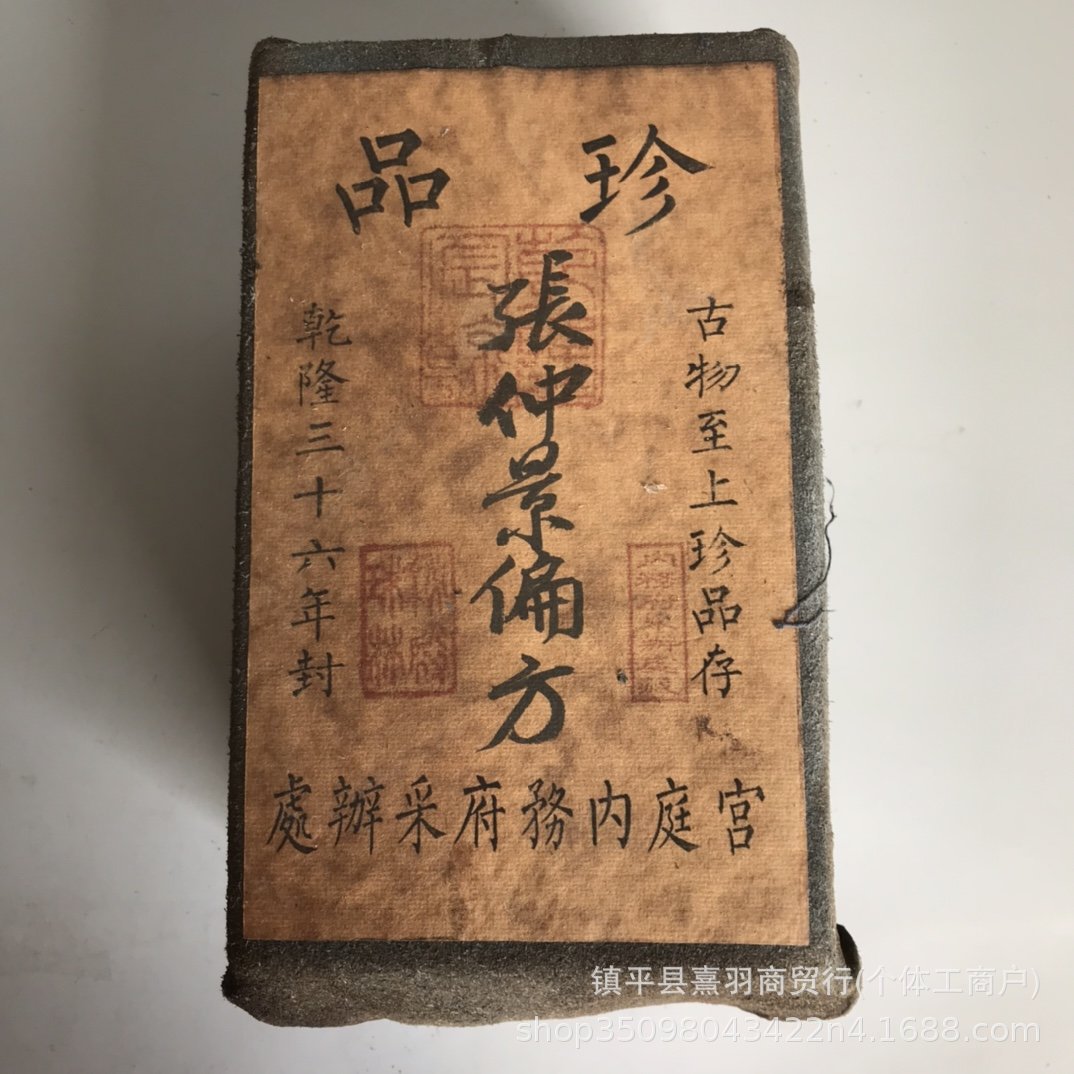 珍品
古物至上珍品存
張仲景偏方
乾隆三十六年封
宫庭内務府采辦處
镇平县熹羽商贸行(个体工商户)
shop35098043422n4.1688.com